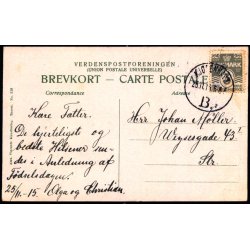 VERDENSPOSTFORENINGEN.
(UNION POSTALE UNIVERSELLE)
BREVKORT - CARTE POSTALE
Correspondance
Adresse
Kære Fatter.
De hjerteligste og
bedste Hilsener sen-
des i Anledning af
Fødselsdagen.
25/11-15. Aga og Christian.
Herr Johan Møller.
Weysesgade 3²
Str.